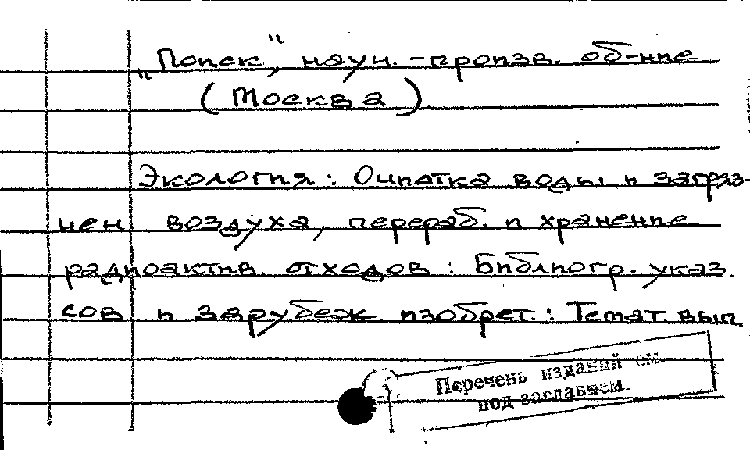 „Поиск", науч.-произв. об-ние
(Москва)
Экология: Очистка воды и загряз-
нен воздуха, перераб. и хранение
радиоактив. отходов: Библиогр. указ.
сов и зарубеж изобрет.: Темат вып
Перечень изданий см.
под заглавием.